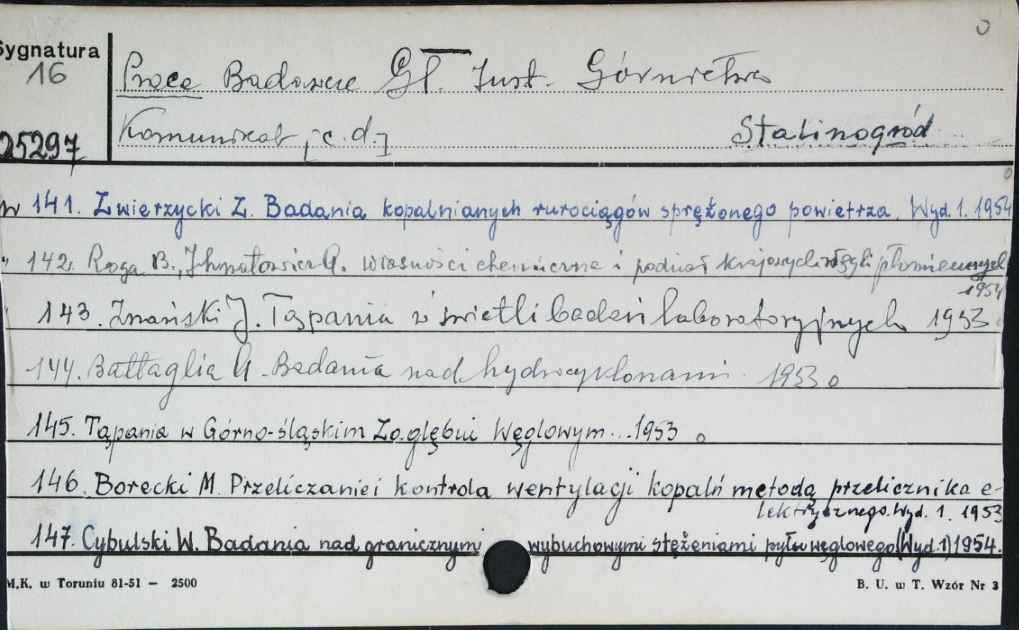 Sygnatura
16
25297
Prace Badawcze Gł. Inst. Górnictwa
Komunikat [c.d.] Stalinogród
w 141. Zwierzycki Z. Badania kopalnianych rurociągów sprężonego powietrza. Wyd. 1. 1954
" 142. Roga B., Ihnatowicz A. Własności chemiczne i podział krajowych węgli płomiennych
1954
143. Znański J. Tąpania w świetle badań laboratoryjnych 1953
144. Battaglia A. Badania nad hydrocyklonami. 1953
145. Tąpania w Górno-śląskim Zagłębiu Węglowym...1953
146. Borecki M. Przeliczanie i kontrola wentylacji kopalń metodą przelicznika e-
lektrycznego. Wyd. 1. 1953
147. Cybulski W. Badania nad granicznymi wybuchowymi stężeniami pyłu węglowego (Wyd. 1) 1954.
M.K. w Toruniu 81-51 — 2500
B. U. w T. Wzór Nr 3